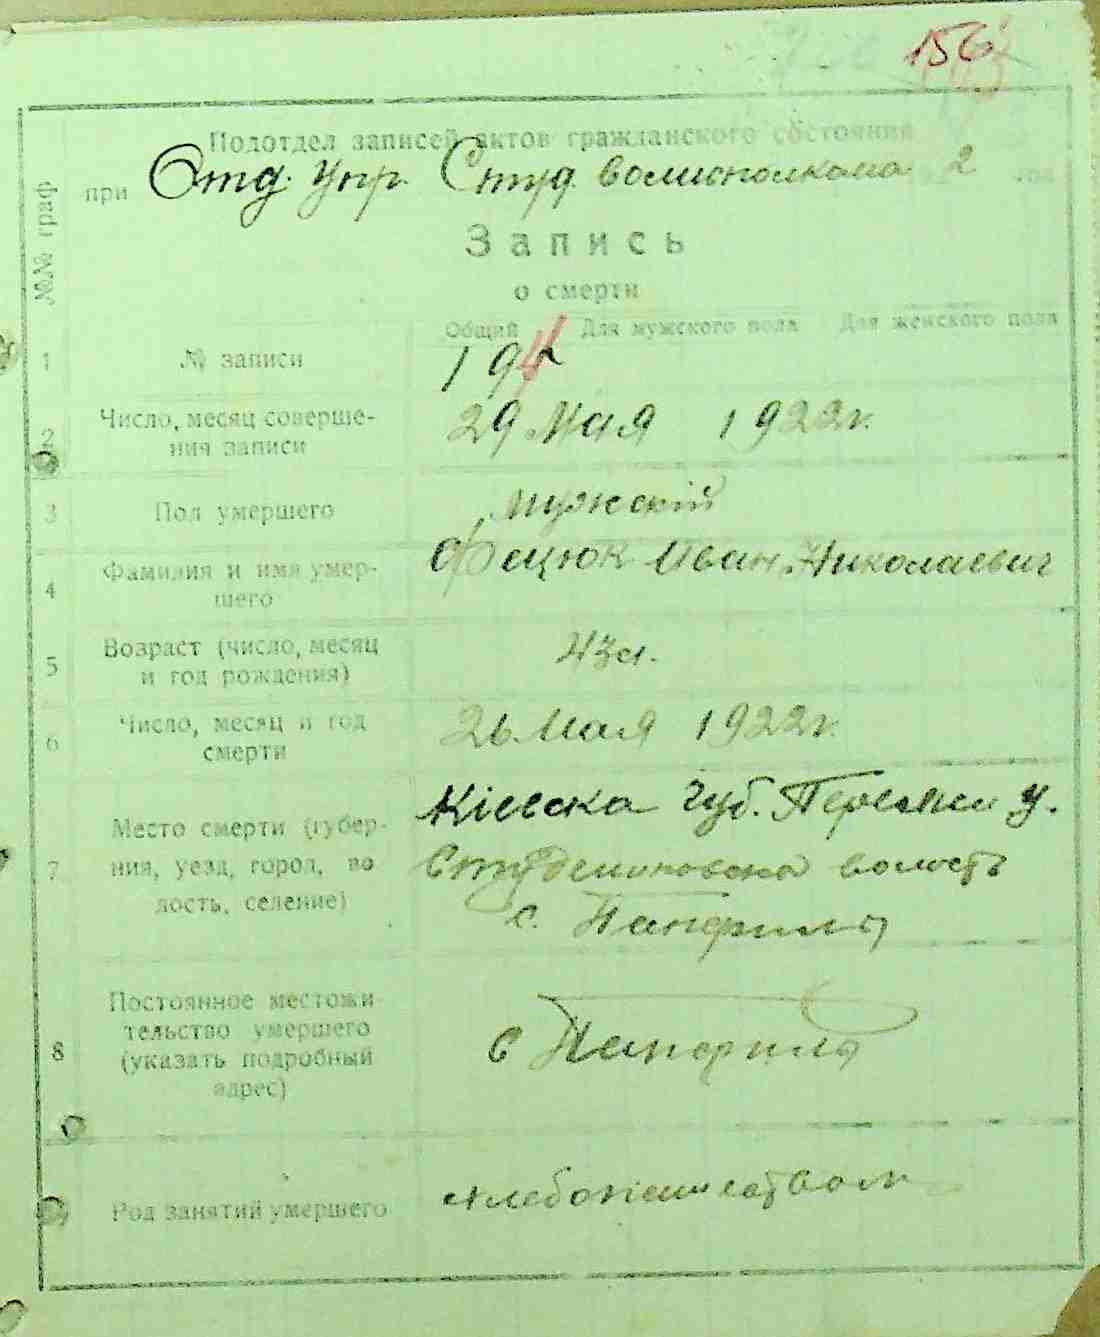 156
Подотдел записей актов гражданского состояния
при Отд. Упр. Студ. Волисполкома 2
№№ граф
Запись
о смерти
Общий Для мужского пола Для женского пола
1 № записи 194
2 Число, месяц соверше-
ния записи 29 Мая 1922 г.
3 Пол умершего мужскій
4 Фамилия и имя умер-
шего Фецюк Иван Николаевич
5 Возраст (число, месяц
и год рождения) 43 л.
6 Число, месяц и год
смерти 26 Мая 1922 г.
Кіевска губ. Переясл у.
7 Место смерти (губер-
ния, уезд, город, во
лость, селение) Студениковска волость
с. Панфилы
8 Постоянное местожи
тельство умершего
(указать подробный
адрес) с Панфилы
Род занятий умершего